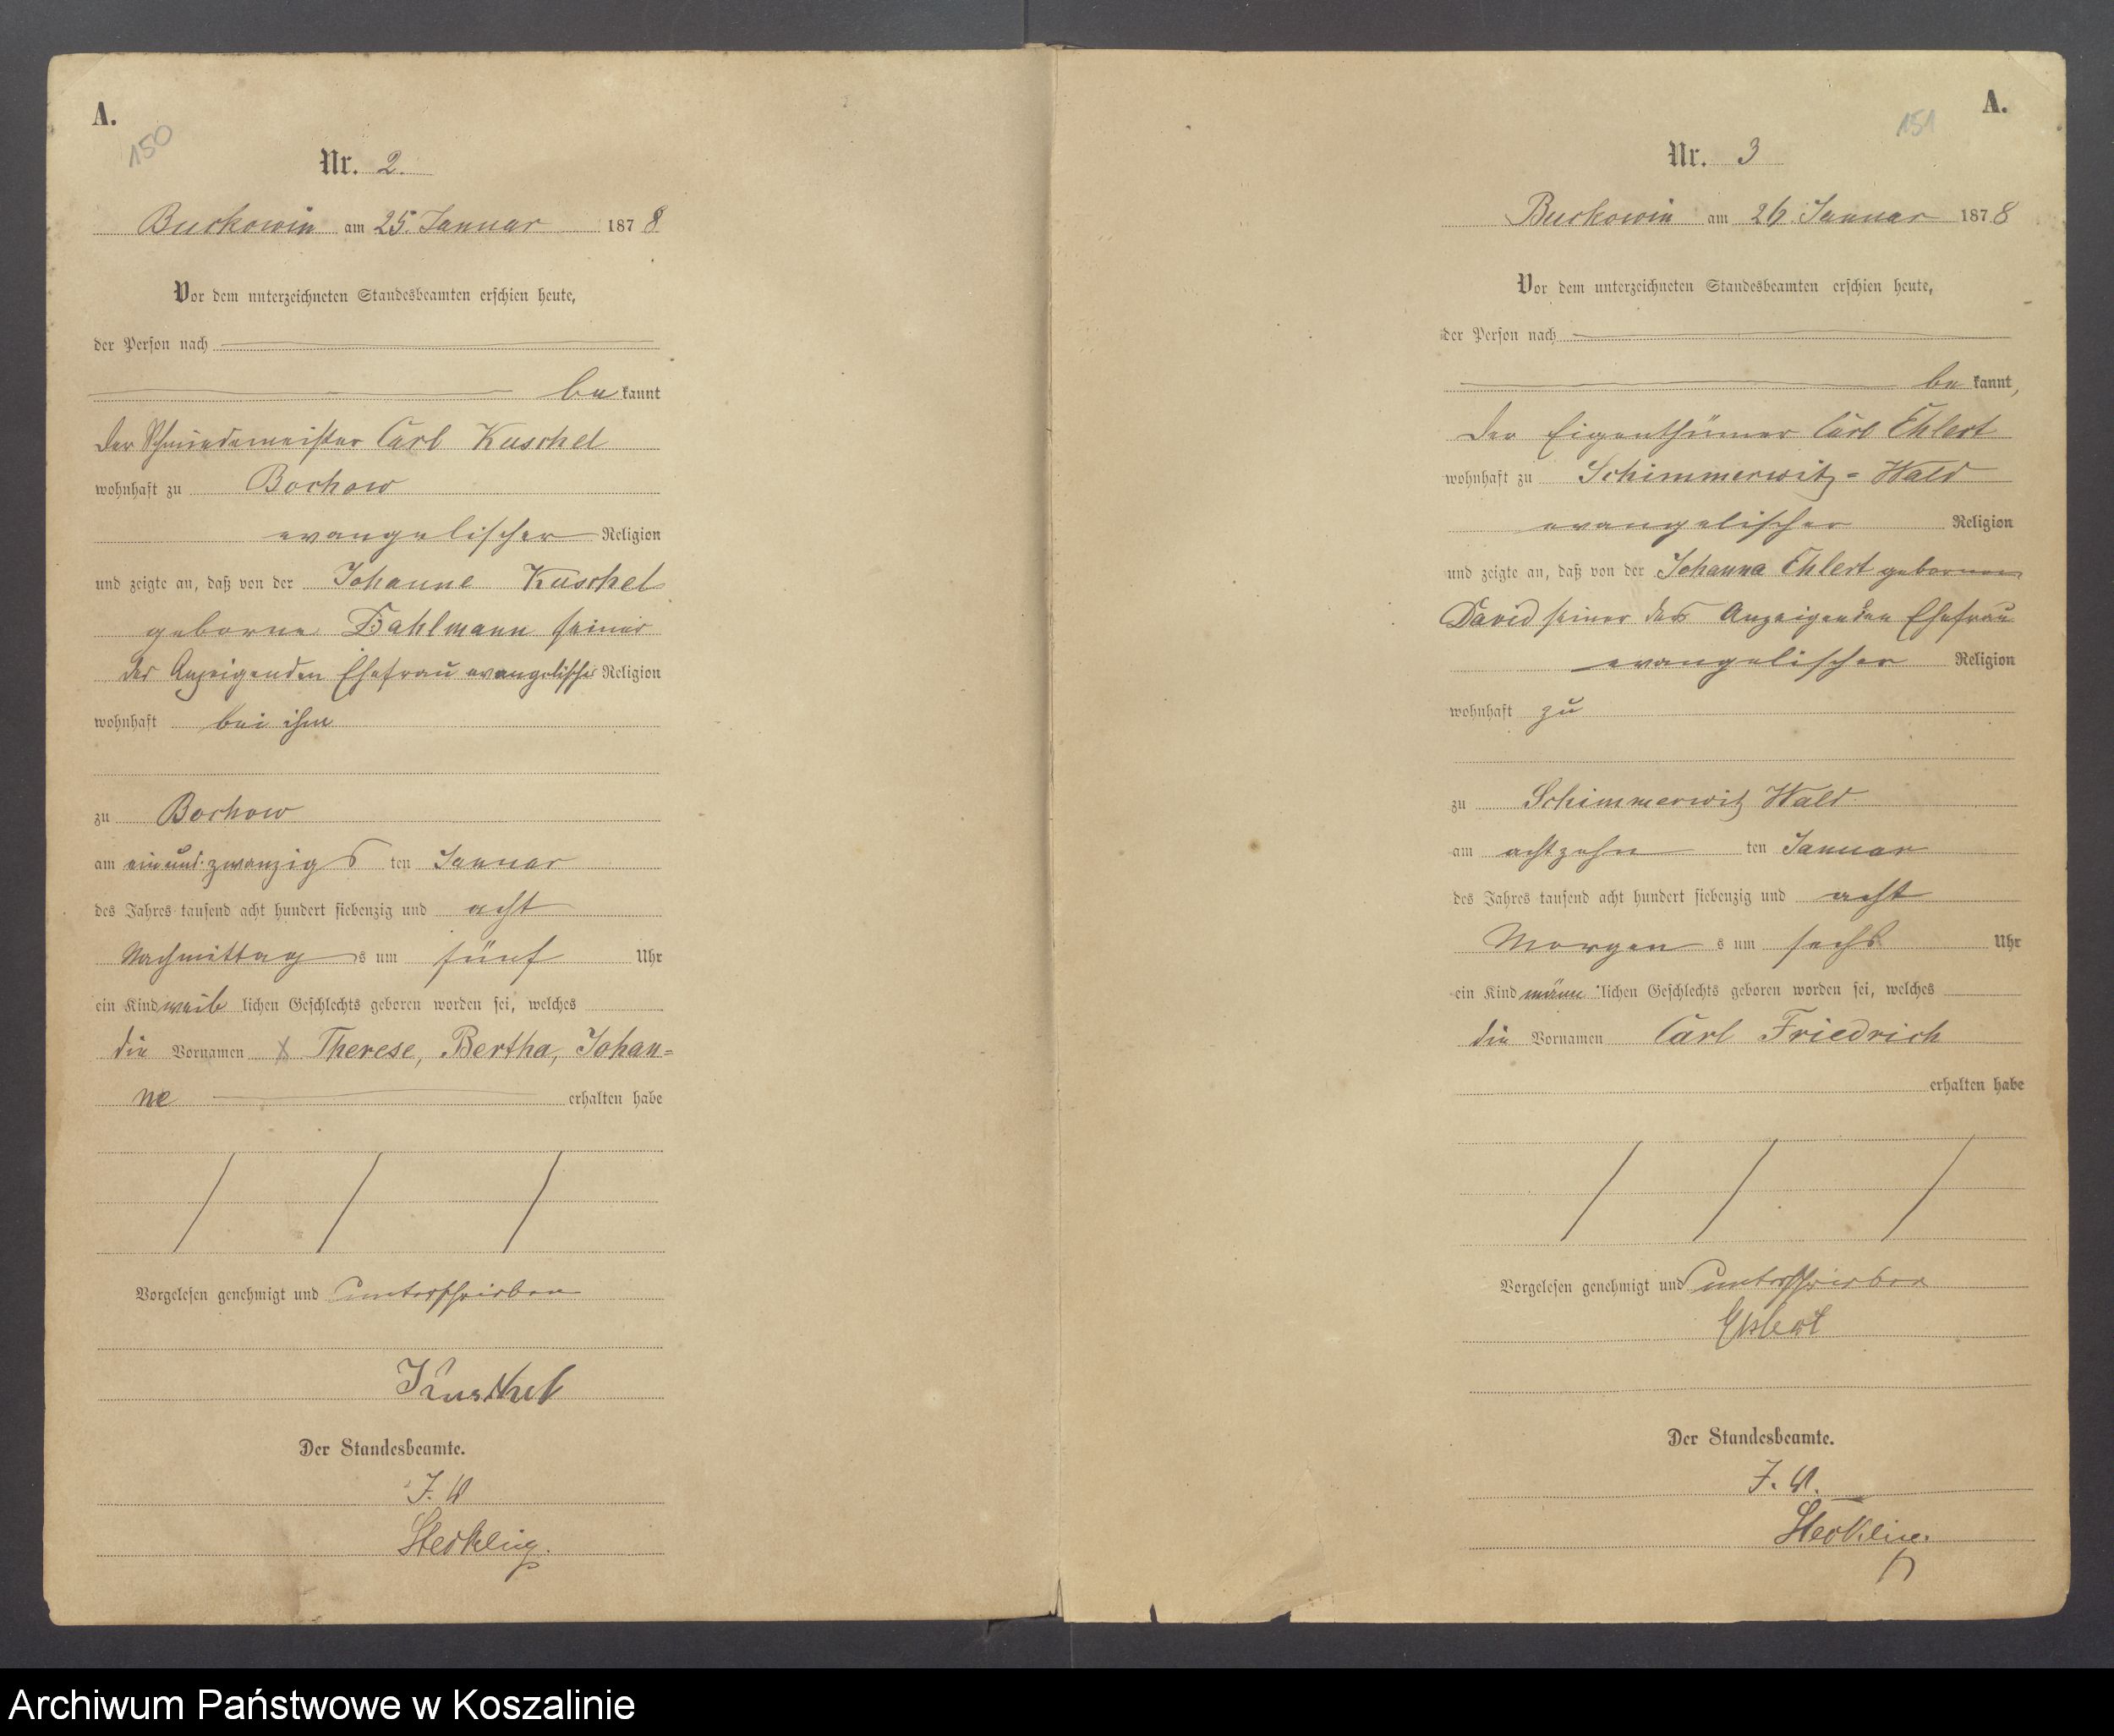 A.
150
Nr. 2.
Buckowin am 25. Januar 1878
Vor dem unterzeichneten Standesbeamten erschien heute,
der Person nach
be kannt
der Schmiedemeister Carl Kuschel
wohnhaft zu Bochow
evangelischer Religion
und zeigte an, daß von der Johanne Kuschel
geborne Dahlmann seiner
des Anzeigenden Ehefrau evangelischer Religion
wohnhaft bei ihm
zu Bochow
am ein und zwanzigs ten Januar
des Jahres tausend acht hundert siebenzig und acht
Nachmittag s um fünf Uhr
ein Kind weib lichen Geschlechts geboren worden sei, welches
die Vornamen Therese, Bertha, Johan=
ne erhalten habe
Vorgelesen genehmigt und unterschrieben
Kuschel
Der Standesbeamte.
J. V.
Steckling.
A.
151
Nr. 3
Buckowin am 26. Januar 1878
Vor dem unterzeichneten Standesbeamten erschien heute,
der Person nach
be kannt,
der Eigenthümer Carl Ehlert
wohnhaft zu Schimmerwitz-Wald
evangelischer Religion
und zeigte an, daß von der Johanna Ehlert gebornen
David seiner des Anzeigenden Ehefrau
evangelischer Religion
wohnhaft zu
zu Schimmerwitz Wald
am achtzehn ten Januar
des Jahres tausend acht hundert siebenzig und acht
Morgen s um sechs Uhr
ein Kind männ lichen Geschlechts geboren worden sei, welches
die Vornamen Carl Friedrich
erhalten habe
Vorgelesen genehmigt und unterschrieben
Ehlert
Der Standesbeamte.
J. V.
Steckling.
Archiwum Państwowe w Koszalinie